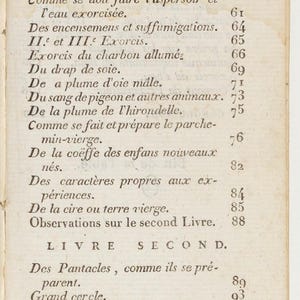 Comme se doit faire l'aspersion et
l'eau exorcisée. 61
Des encensemens et suffumigations. 64
II.e et III.e Exorcis. 65
Exorcis du charbon allumé. 66
Du drap de soie. 69
De a plume d'oie mâle. 71
Du sang de pigeon et autres animaux. 73
De la plume de l'hirondelle. 75
Comme se fait et prépare le parche-
min-vierge. 76
De la coëffe des enfans nouveaux
nés. 82
Des caractères propres aux ex-
périences. 84
De la cire ou terre vierge. 85
Observations sur le second Livre. 88
LIVRE SECOND.
Des Pantacles, comme ils se pré-
parent. 89
Grand cercle. 93